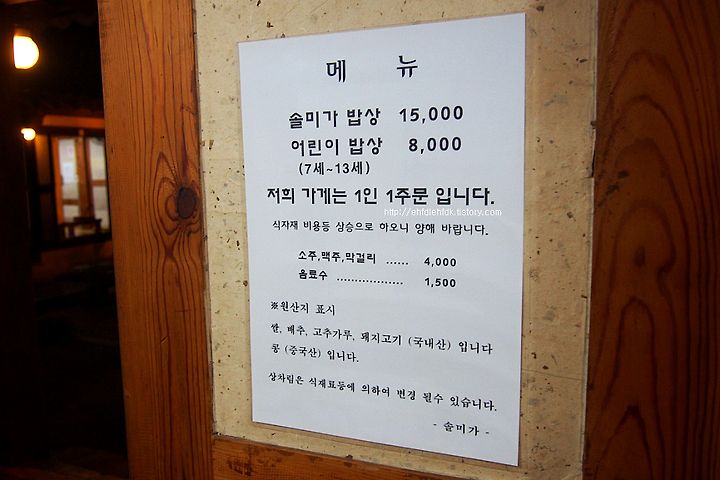 메 뉴
솔미가 밥상 15,000
어린이 밥상 8,000
(7세~13세)
저희 가게는 1인 1주문 입니다.
http://ehfdlehfdk.tistory.com
식자재 비용등 상승으로 하오니 양해 바랍니다.
소주,맥주,막걸리 ...... 4,000
음료수 .................. 1,500
※원산지 표시
쌀, 배추, 고추가루, 돼지고기 (국내산) 입니다
콩 (중국산) 입니다.
상차림은 식재료등에 의하여 변경 될수 있습니다.
- 솔미가 -